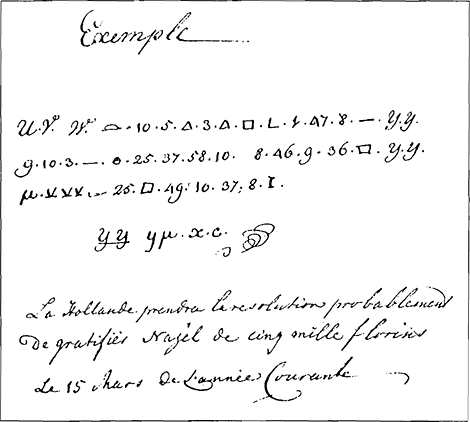 Exemple
U. V. W. ⌓ · 10 · 5 · Δ · 3 · Δ · □ · L · 47 · 8 · — · y.y.
9 · 10 · 3 · — · o · 25 · 37 · 58 · 10 · 8 · 46 · 9 · 36 · □ · y.y.
μ · — 25 · □ · 49 · 10 · 37 · 8 · I ·
yy yμ · x · c ·
La Hollande prendra la resolution probablement
De gratifiér Nagél de cinq mille florins
Le 15 Mars de L'année Courante